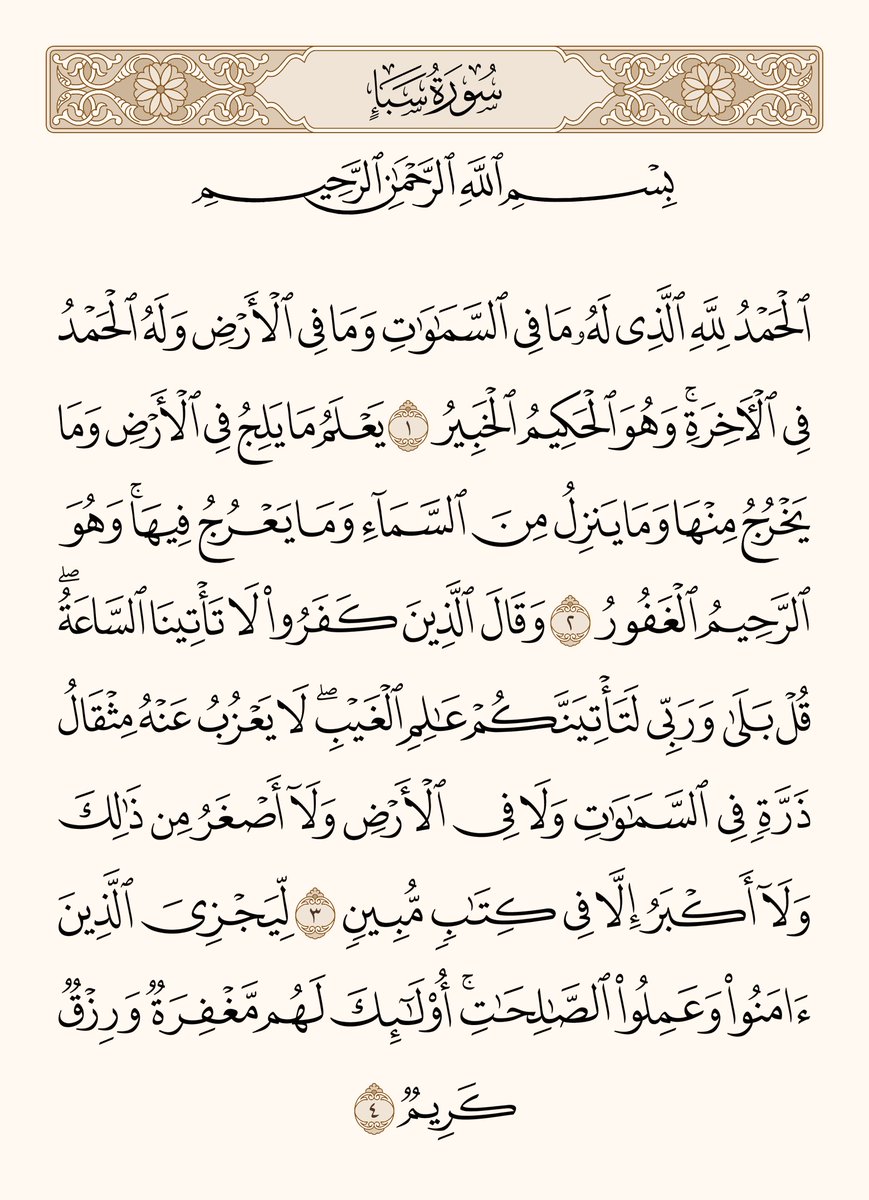 سُورَةُ سَبَإٍ
بِسۡمِ ٱللَّهِ ٱلرَّحۡمَٰنِ ٱلرَّحِيمِ
ٱلۡحَمۡدُ لِلَّهِ ٱلَّذِى لَهُۥ مَا فِى ٱلسَّمَٰوَٰتِ وَمَا فِى ٱلۡأَرۡضِ وَلَهُ ٱلۡحَمۡدُ
فِى ٱلۡأٓخِرَةِۚ وَهُوَ ٱلۡحَكِيمُ ٱلۡخَبِيرُ ١ يَعۡلَمُ مَا يَلِجُ فِى ٱلۡأَرۡضِ وَمَا
يَخۡرُجُ مِنۡهَا وَمَا يَنزِلُ مِنَ ٱلسَّمَآءِ وَمَا يَعۡرُجُ فِيهَاۚ وَهُوَ
ٱلرَّحِيمُ ٱلۡغَفُورُ ٢ وَقَالَ ٱلَّذِينَ كَفَرُواْ لَا تَأۡتِينَا ٱلسَّاعَةُۖ
قُلۡ بَلَىٰ وَرَبِّى لَتَأۡتِيَنَّكُمۡ عَٰلِمِ ٱلۡغَيۡبِۖ لَا يَعۡزُبُ عَنۡهُ مِثۡقَالُ
ذَرَّةٖ فِى ٱلسَّمَٰوَٰتِ وَلَا فِى ٱلۡأَرۡضِ وَلَآ أَصۡغَرُ مِن ذَٰلِكَ
وَلَآ أَكۡبَرُ إِلَّا فِى كِتَٰبٖ مُّبِينٖ ٣ لِّيَجۡزِىَ ٱلَّذِينَ
ءَامَنُواْ وَعَمِلُواْ ٱلصَّٰلِحَٰتِۚ أُوْلَٰٓئِكَ لَهُم مَّغۡفِرَةٞ وَرِزۡقٞ
كَرِيمٞ ٤